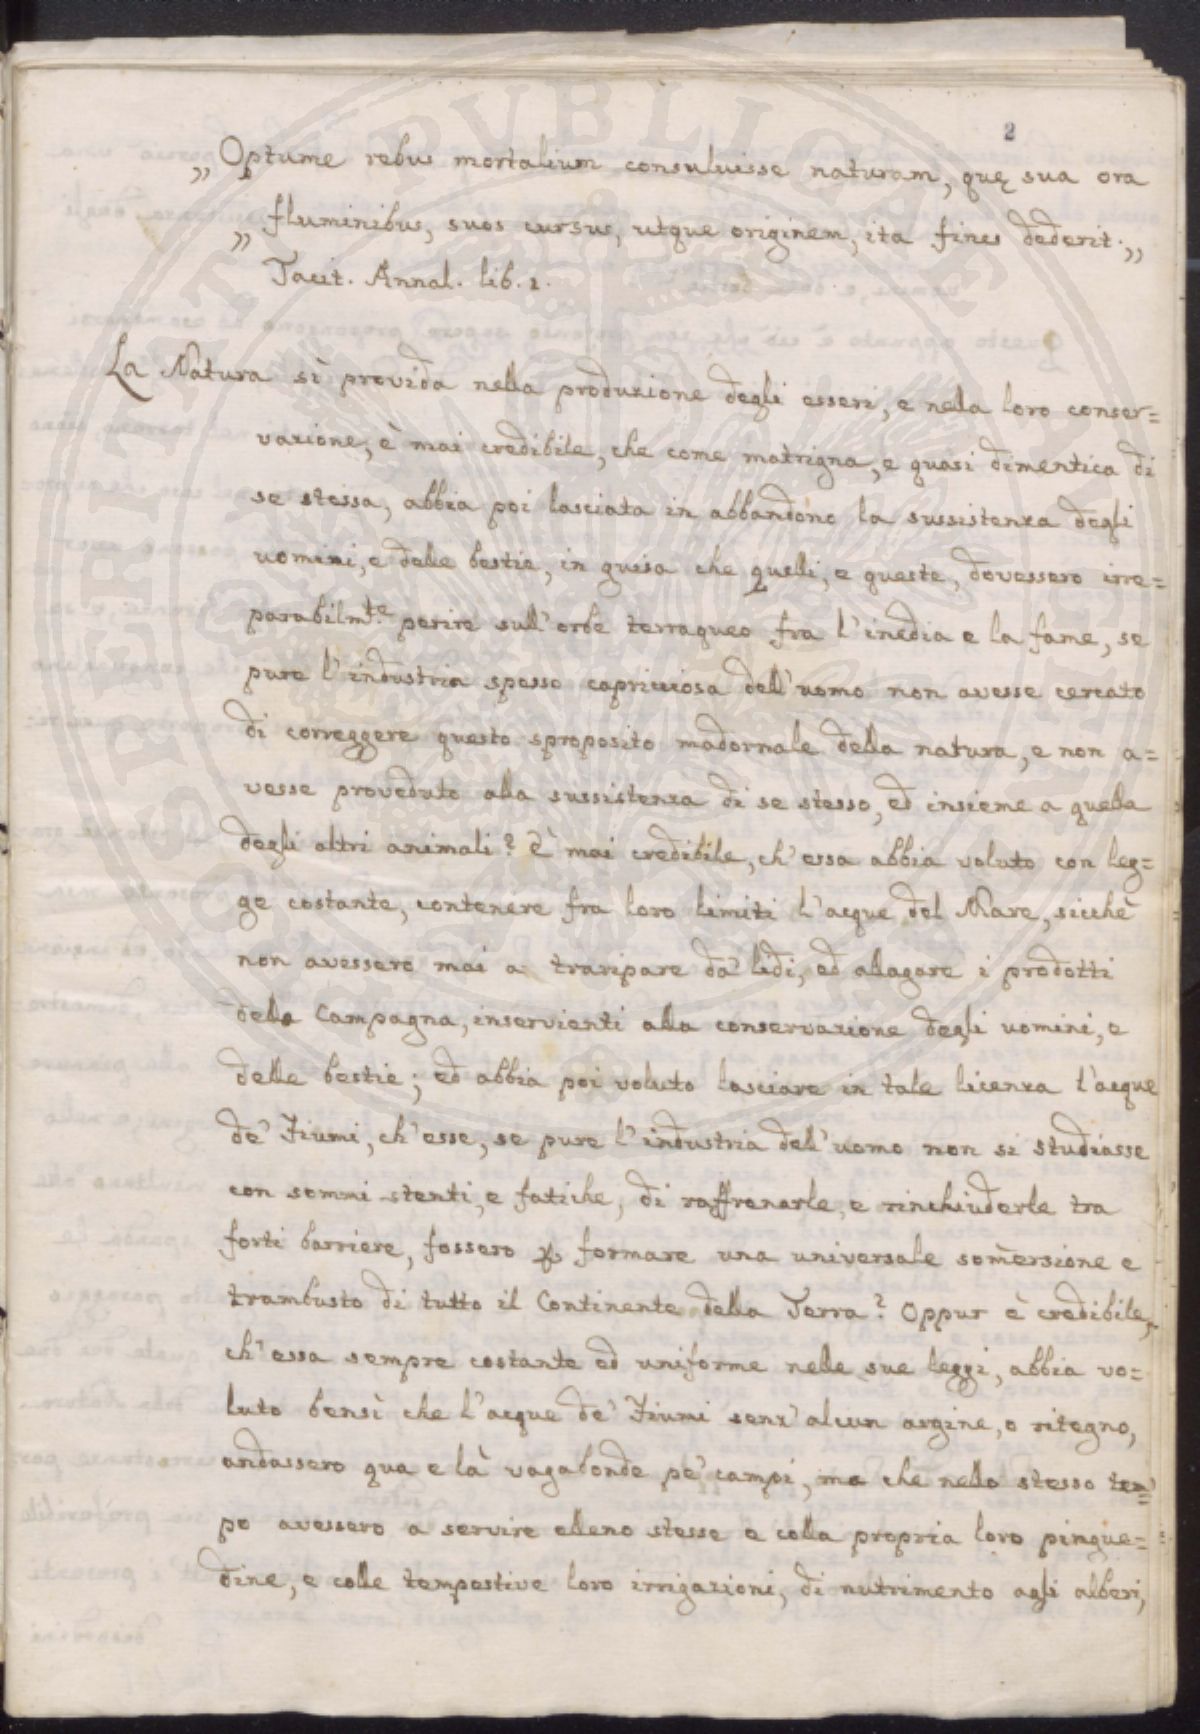 2
„ Optume rebus mortalium consuluisse naturam, quę sua ora
„ fluminibus, suos cursus, utque originem, ita fines dederit. „
Tacit. Annal. lib. 1.
La Natura sì provida nella produzione degli esseri, e nella loro conser=
vazione, è mai credibile, che come matrigna, e quasi dimentica di
se stessa, abbia poi lasciata in abbandono la sussistenza degli
uomini, e delle bestie, in guisa che quelli, e queste, dovessero irre=
parabilm.te perire sull' orbe terraqueo fra l' inedia e la fame, se
pure l' industria spesso capricciosa dell' uomo non avesse cercato
di correggere questo sproposito madornale della natura, e non a=
vesse proveduto alla sussistenza di se stesso, ed insieme a quella
degli altri animali? È mai credibile, ch' essa abbia voluto con leg=
ge costante, contenere fra loro limiti l' acque del Mare, sicchè
non avessero mai a traripare da' lidi, ed allagare i prodotti
della Campagna, inservienti alla conservazione degli uomini, e
delle bestie; ed abbia poi voluto lasciare in tale licenza l' acque
de' Fiumi, ch' esse, se pure l' industria dell' uomo non si studiasse
con sommi stenti, e fatiche, di raffrenarle, e rinchiuderle tra
forti barriere, fossero formare una universale som̃ersione e
trambusto di tutto il Continente della Terra? Oppur è credibile,
ch' essa sempre costante ed uniforme nelle sue leggi, abbia vo=
luto bensì che l' acque de' Fiumi senz' alcun argine, o ritegno,
andassero qua e là vagabonde pe' campi, ma che nello stesso tem=
po avessero a servire elleno stesse e colla propria loro pingue=
dine, e colle tempestive loro irrigazioni, di nutrimento agli alberi,